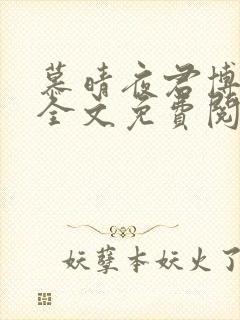 慕晴夜君博
全文免費閱
妖孽本妖火了